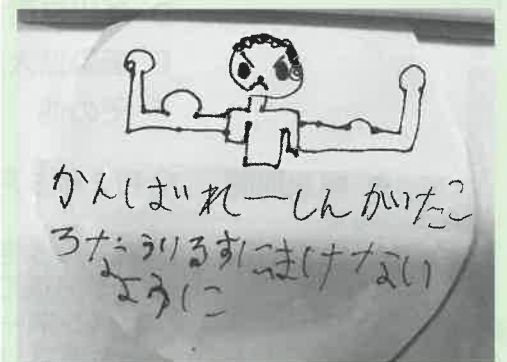 かんばれーしんがたこ
ろなういるすにまけない
ように